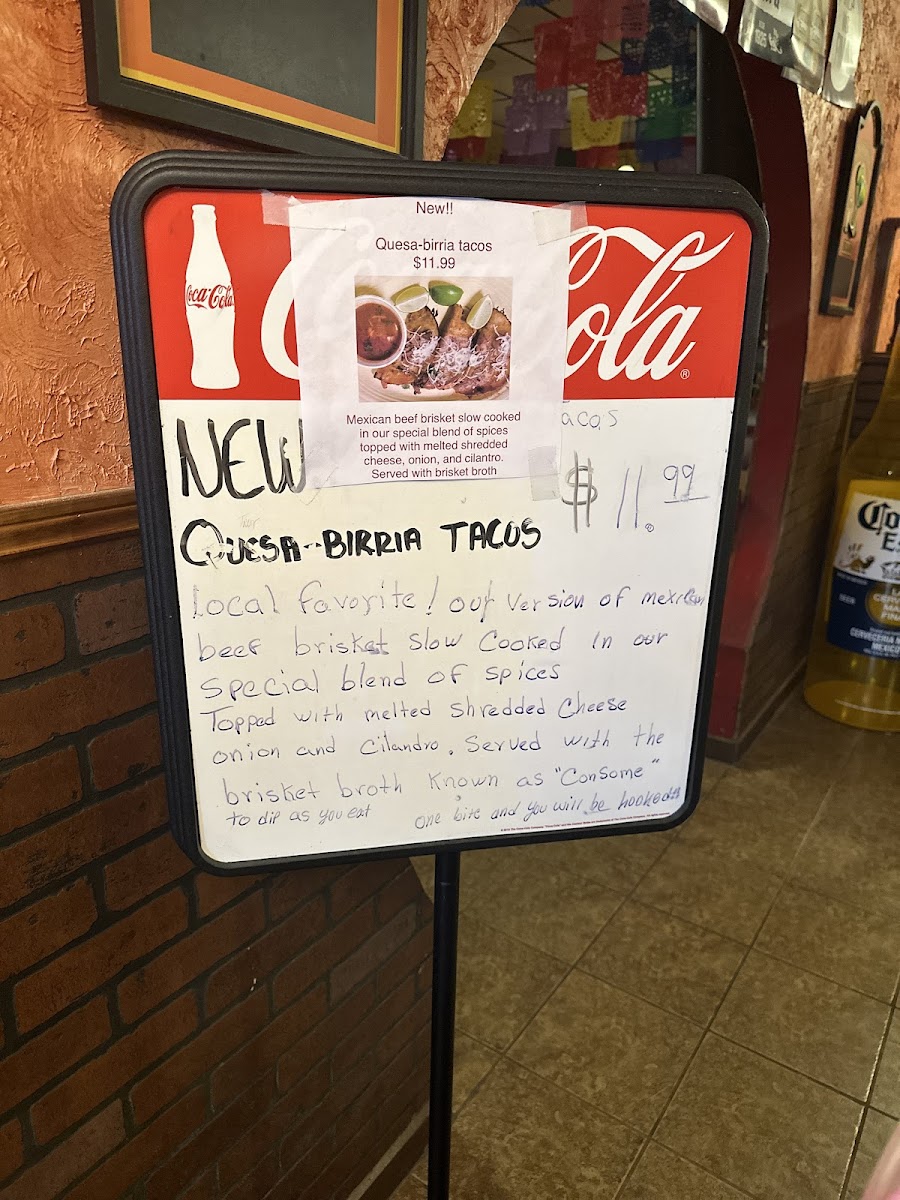 Coca-Cola
Cola®
New!!
Quesa-birria tacos
$11.99
Mexican beef brisket slow cooked
in our special blend of spices
topped with melted shredded
cheese, onion, and cilantro.
Served with brisket broth
NEW
acos
$11.99
QUESA-BIRRIA TACOS
Local favorite! our version of mexican
beef brisket slow Cooked in our
special blend of spices
Topped with melted shredded Cheese
onion and Cilandro. Served with the
brisket broth Known as "Consome"
to dip as you eat one bite and you will be hooked!!!
CERVECERIA M
MEXICO